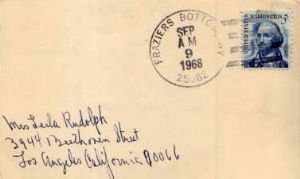 FRAZIERS BOTTOM
SEP
AM
9
1968
25082
UNITED STATES
WASHINGTON
5¢
Mrs Leila Rudolph
3944 Beethoven Street
Los Angeles California 90066